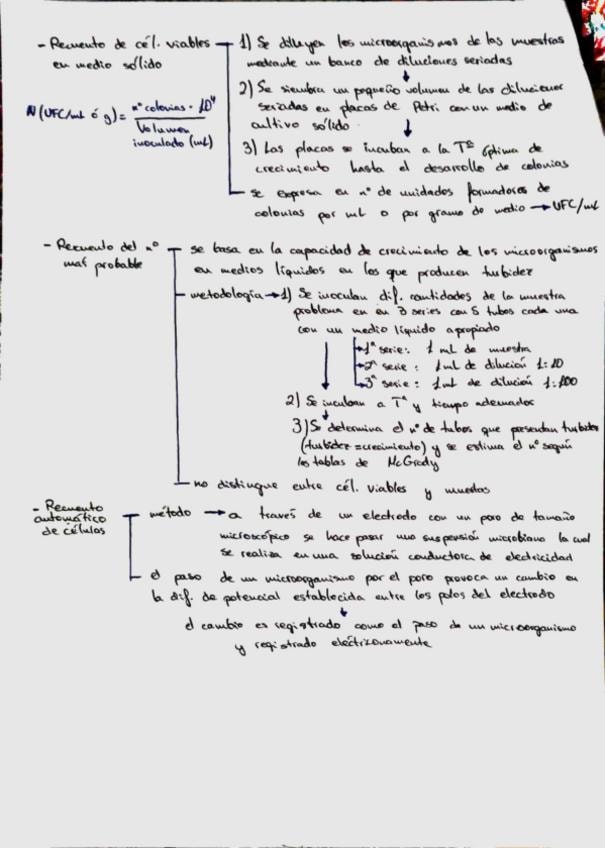 - Recuento de cél. viables
en medio sólido
N (UFC/mL ó g) = nº colonias · 10ⁿ
Volumen
inoculado (mL)
1) Se diluyen los microorganismos de las muestras
mediante un banco de diluciones seriadas
2) Se siembra un pequeño volumen de las diluciones
seriadas en placas de Petri con un medio de
cultivo sólido.
3) Las placas se incuban a la Tª óptima de
crecimiento hasta el desarrollo de colonias
se expresa en nº de unidades formadoras de
colonias por mL o por gramo de medio → UFC/mL
- Recuento del nº
más probable
se basa en la capacidad de crecimiento de los microorganismos
en medios líquidos en los que producen turbidez
metodología → 1) Se inoculan dif. cantidades de la muestra
problema en en 3 series con 5 tubos cada una
con un medio líquido apropiado
→ 1ª serie: 1 mL de muestra
→ 2ª serie: 1 mL de dilución 1:10
→ 3ª serie: 1 mL de dilución 1:100
2) Se incuban a Tª y tiempo adecuados
3) Se determina el nº de tubos que presentan turbidez
(turbidez = crecimiento) y se estima el nº según
las tablas de McGrady
no distingue entre cél. viables y muertas
- Recuento
automático
de células
método → a través de un electrodo con un poro de tamaño
microscópico se hace pasar una suspensión microbiana la cual
se realiza en una solución conductora de electricidad
el paso de un microorganismo por el poro provoca un cambio en
la dif. de potencial establecida entre los polos del electrodo
el cambio es registrado como el paso de un microorganismo
y registrado eléctrizonamente